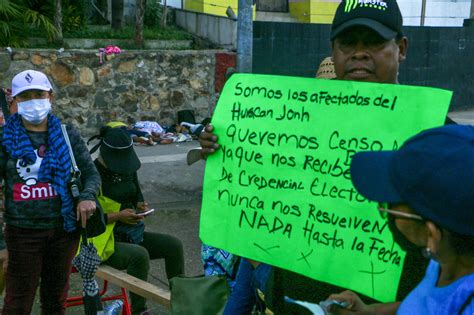 MONSTER
Somos los afectados del
Huracan Jonh
Queremos Censo
Ya que nos Recibe
De Credencial Elector
nunca nos Resuelven
NADA Hasta la Fecha
SMILE